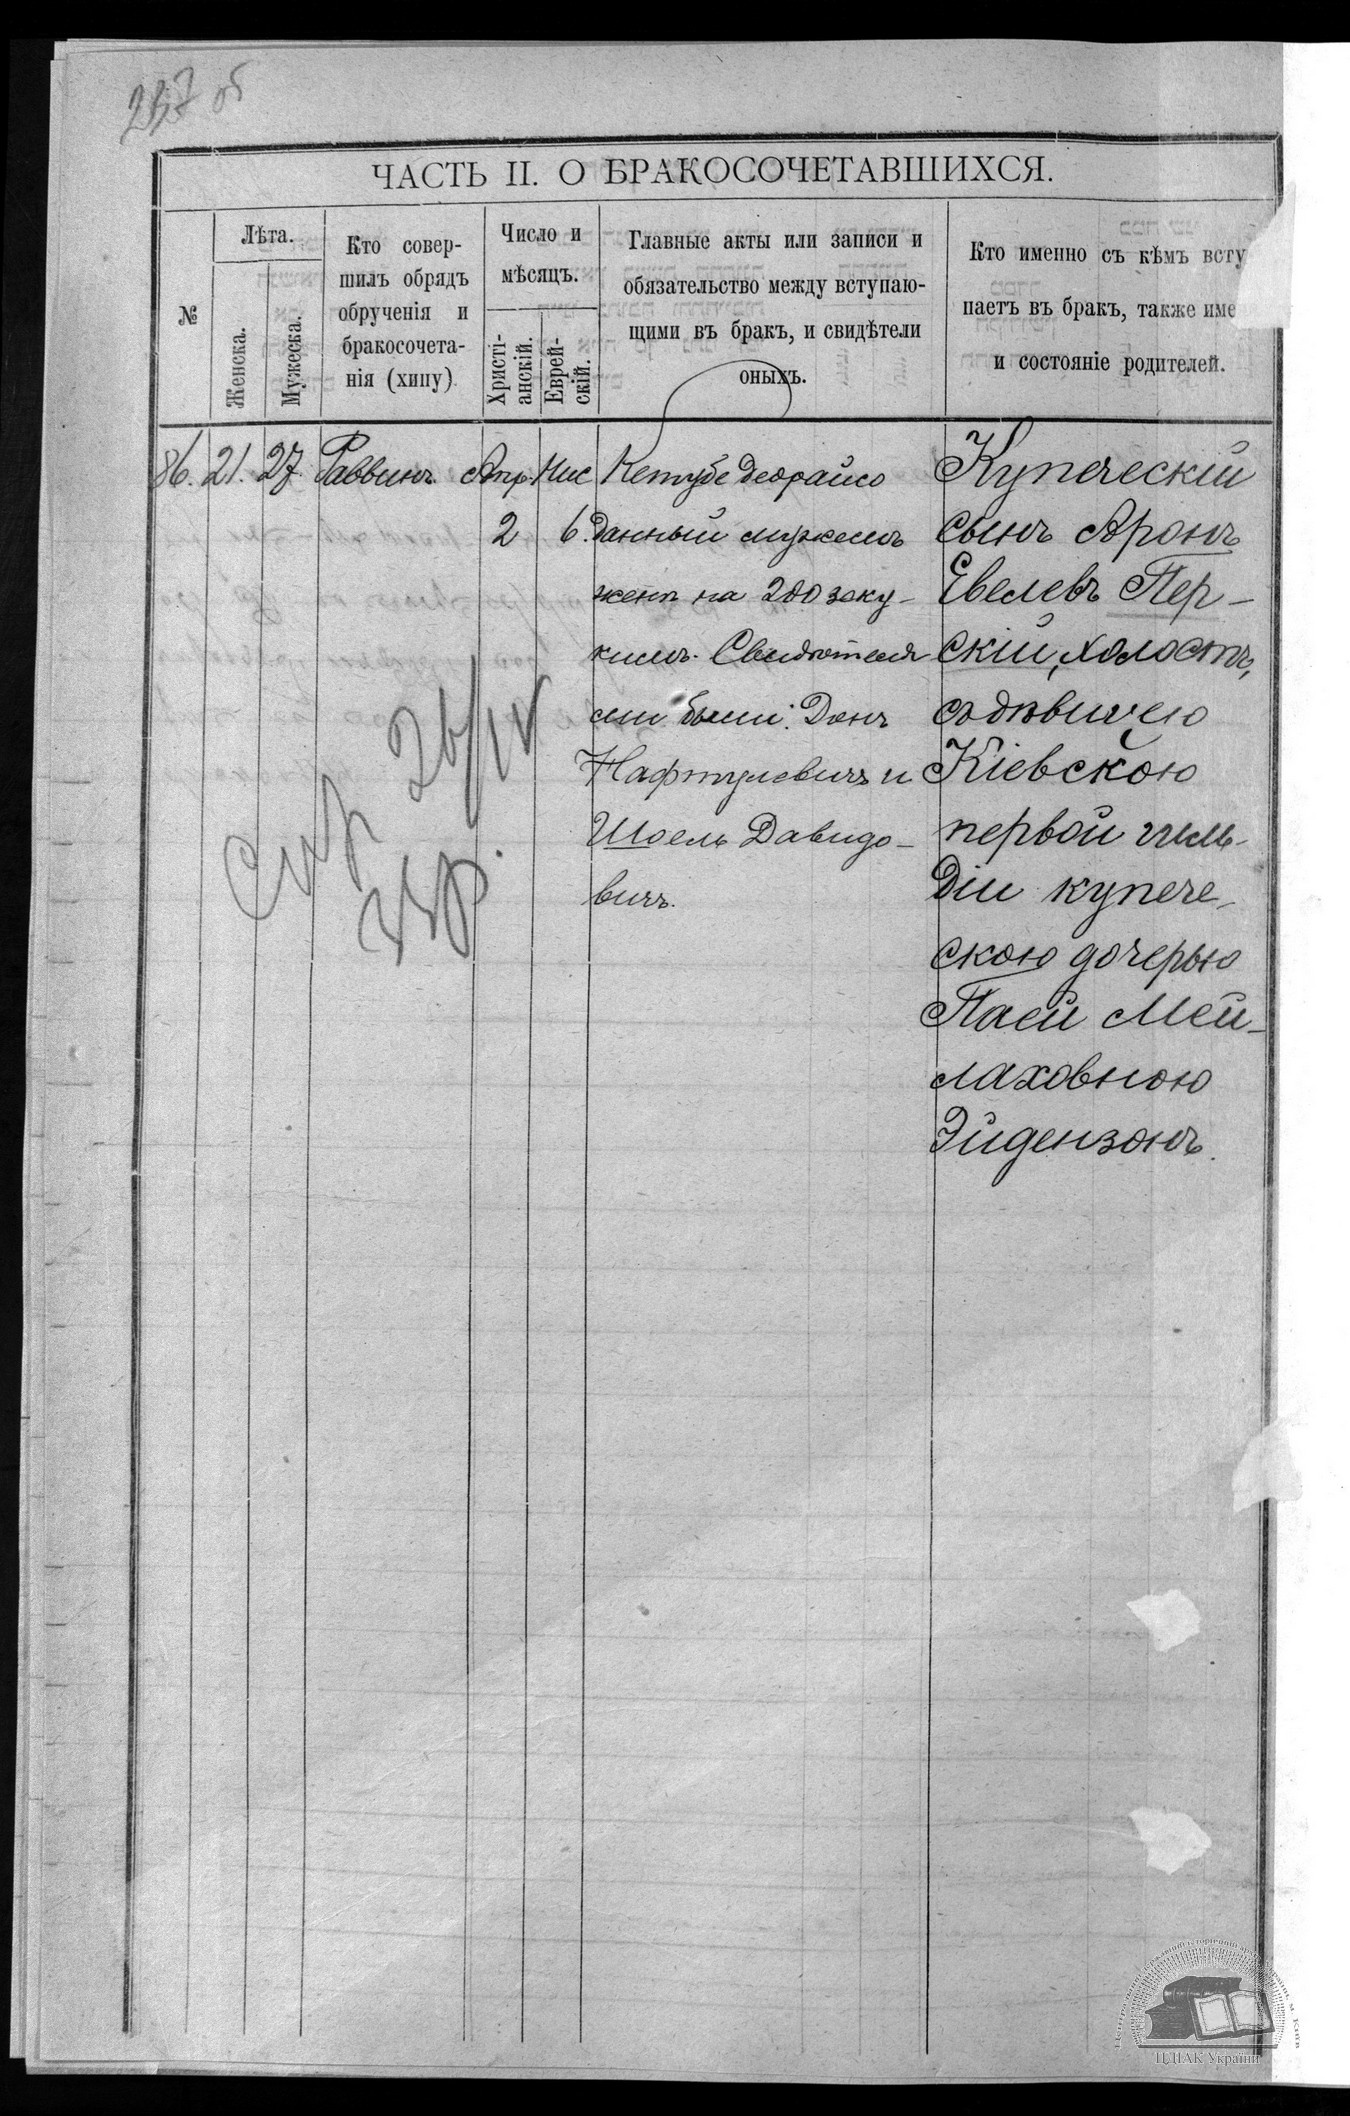 237 об
ЧАСТЬ II. О БРАКОСОЧЕТАВШИХСЯ.
№
Лѣта.
Женска.
Мужеска.
Кто совер-
шилъ обрядъ
обрученія и
бракосочета-
нія (хипу)
Число и
мѣсяцъ.
Христі-
анскій.
Еврей-
скій.
Главные акты или записи и
обязательство между вступаю-
щими въ бракъ, и свидѣтели
оныхъ.
Кто именно съ кѣмъ всту
паетъ въ бракъ, также име
и состояніе родителей.
86.
21.
27
Раввинъ
Апр.
2
Нис
6.
Кетубе деорайсо
данный мужемъ
женѣ на 200 зеку-
кимъ. Свидѣтеля
ми были: Донъ
Нафтулевичъ и
Шоель Давидо-
вичъ.
Купеческій
сынъ Аронъ
Евелевъ Пер-
скій, холостъ,
съ дѣвицею
Кіевскою
первой гиль-
діи купече-
скою дочерью
Паей Мей-
лаховною
Эйдензонъ.
26/IV
ЦДІАК України